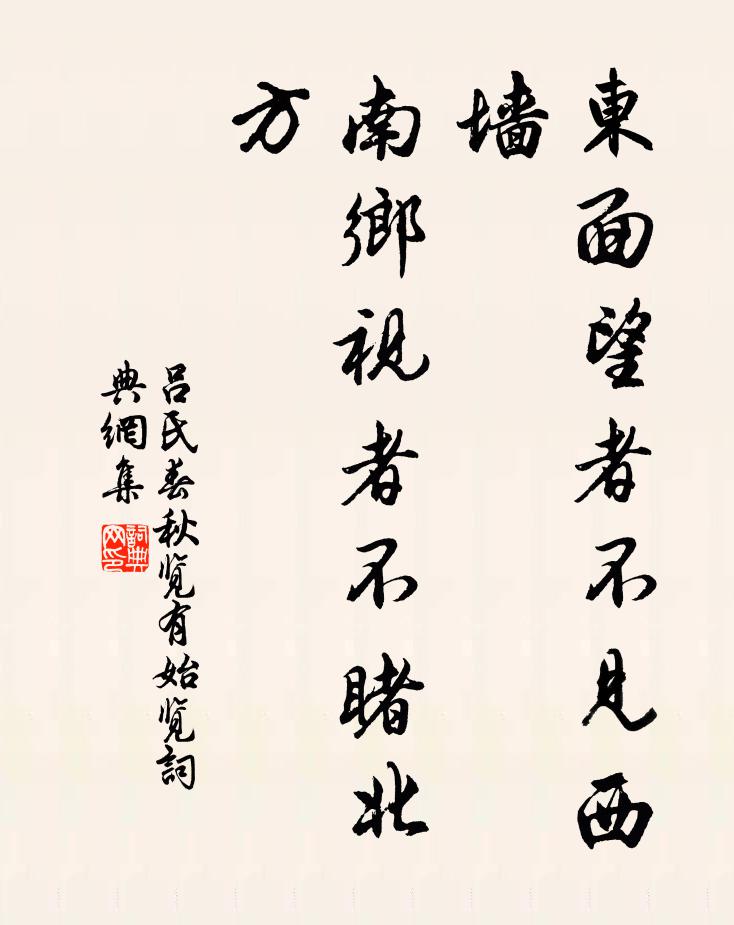 東面望者不見西
墙
南鄉視者不睹北
方
吕氏春秋览有始览詞
典網集
詞典
网印